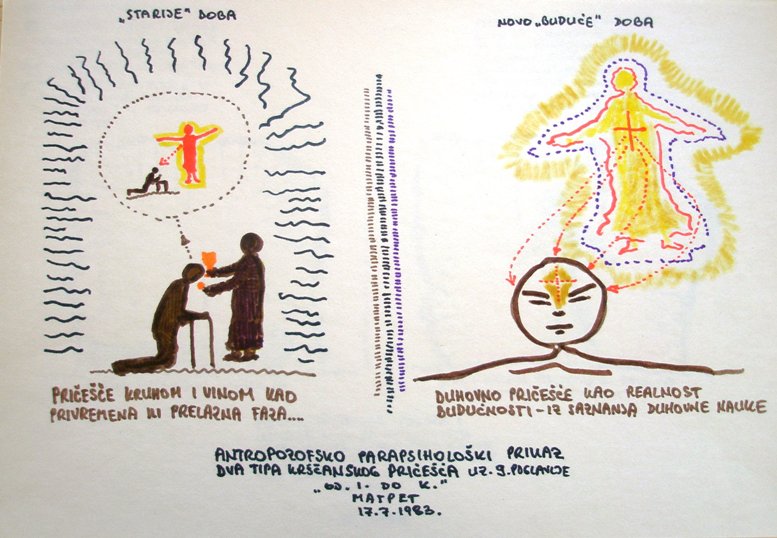 „STARIJE" DOBA
NOVO „BUDUĆE" DOBA
PRIČEŠĆE KRUHOM I VINOM KAO
PRIVREMENA ILI PRELAZNA FAZA....
DUHOVNO PRIČEŠĆE KAO REALNOST
BUDUĆNOSTI - IZ SAZNANJA DUHOVNE NAUKE
ANTROPOZOFSKO PARAPSIHOLOŠKI PRIKAZ
DVA TIPA KRŠĆANSKOG PRIČEŠĆA UZ. 9. POGLAVLJE
„OD. I. DO K."
MATPET
17.7.1983.